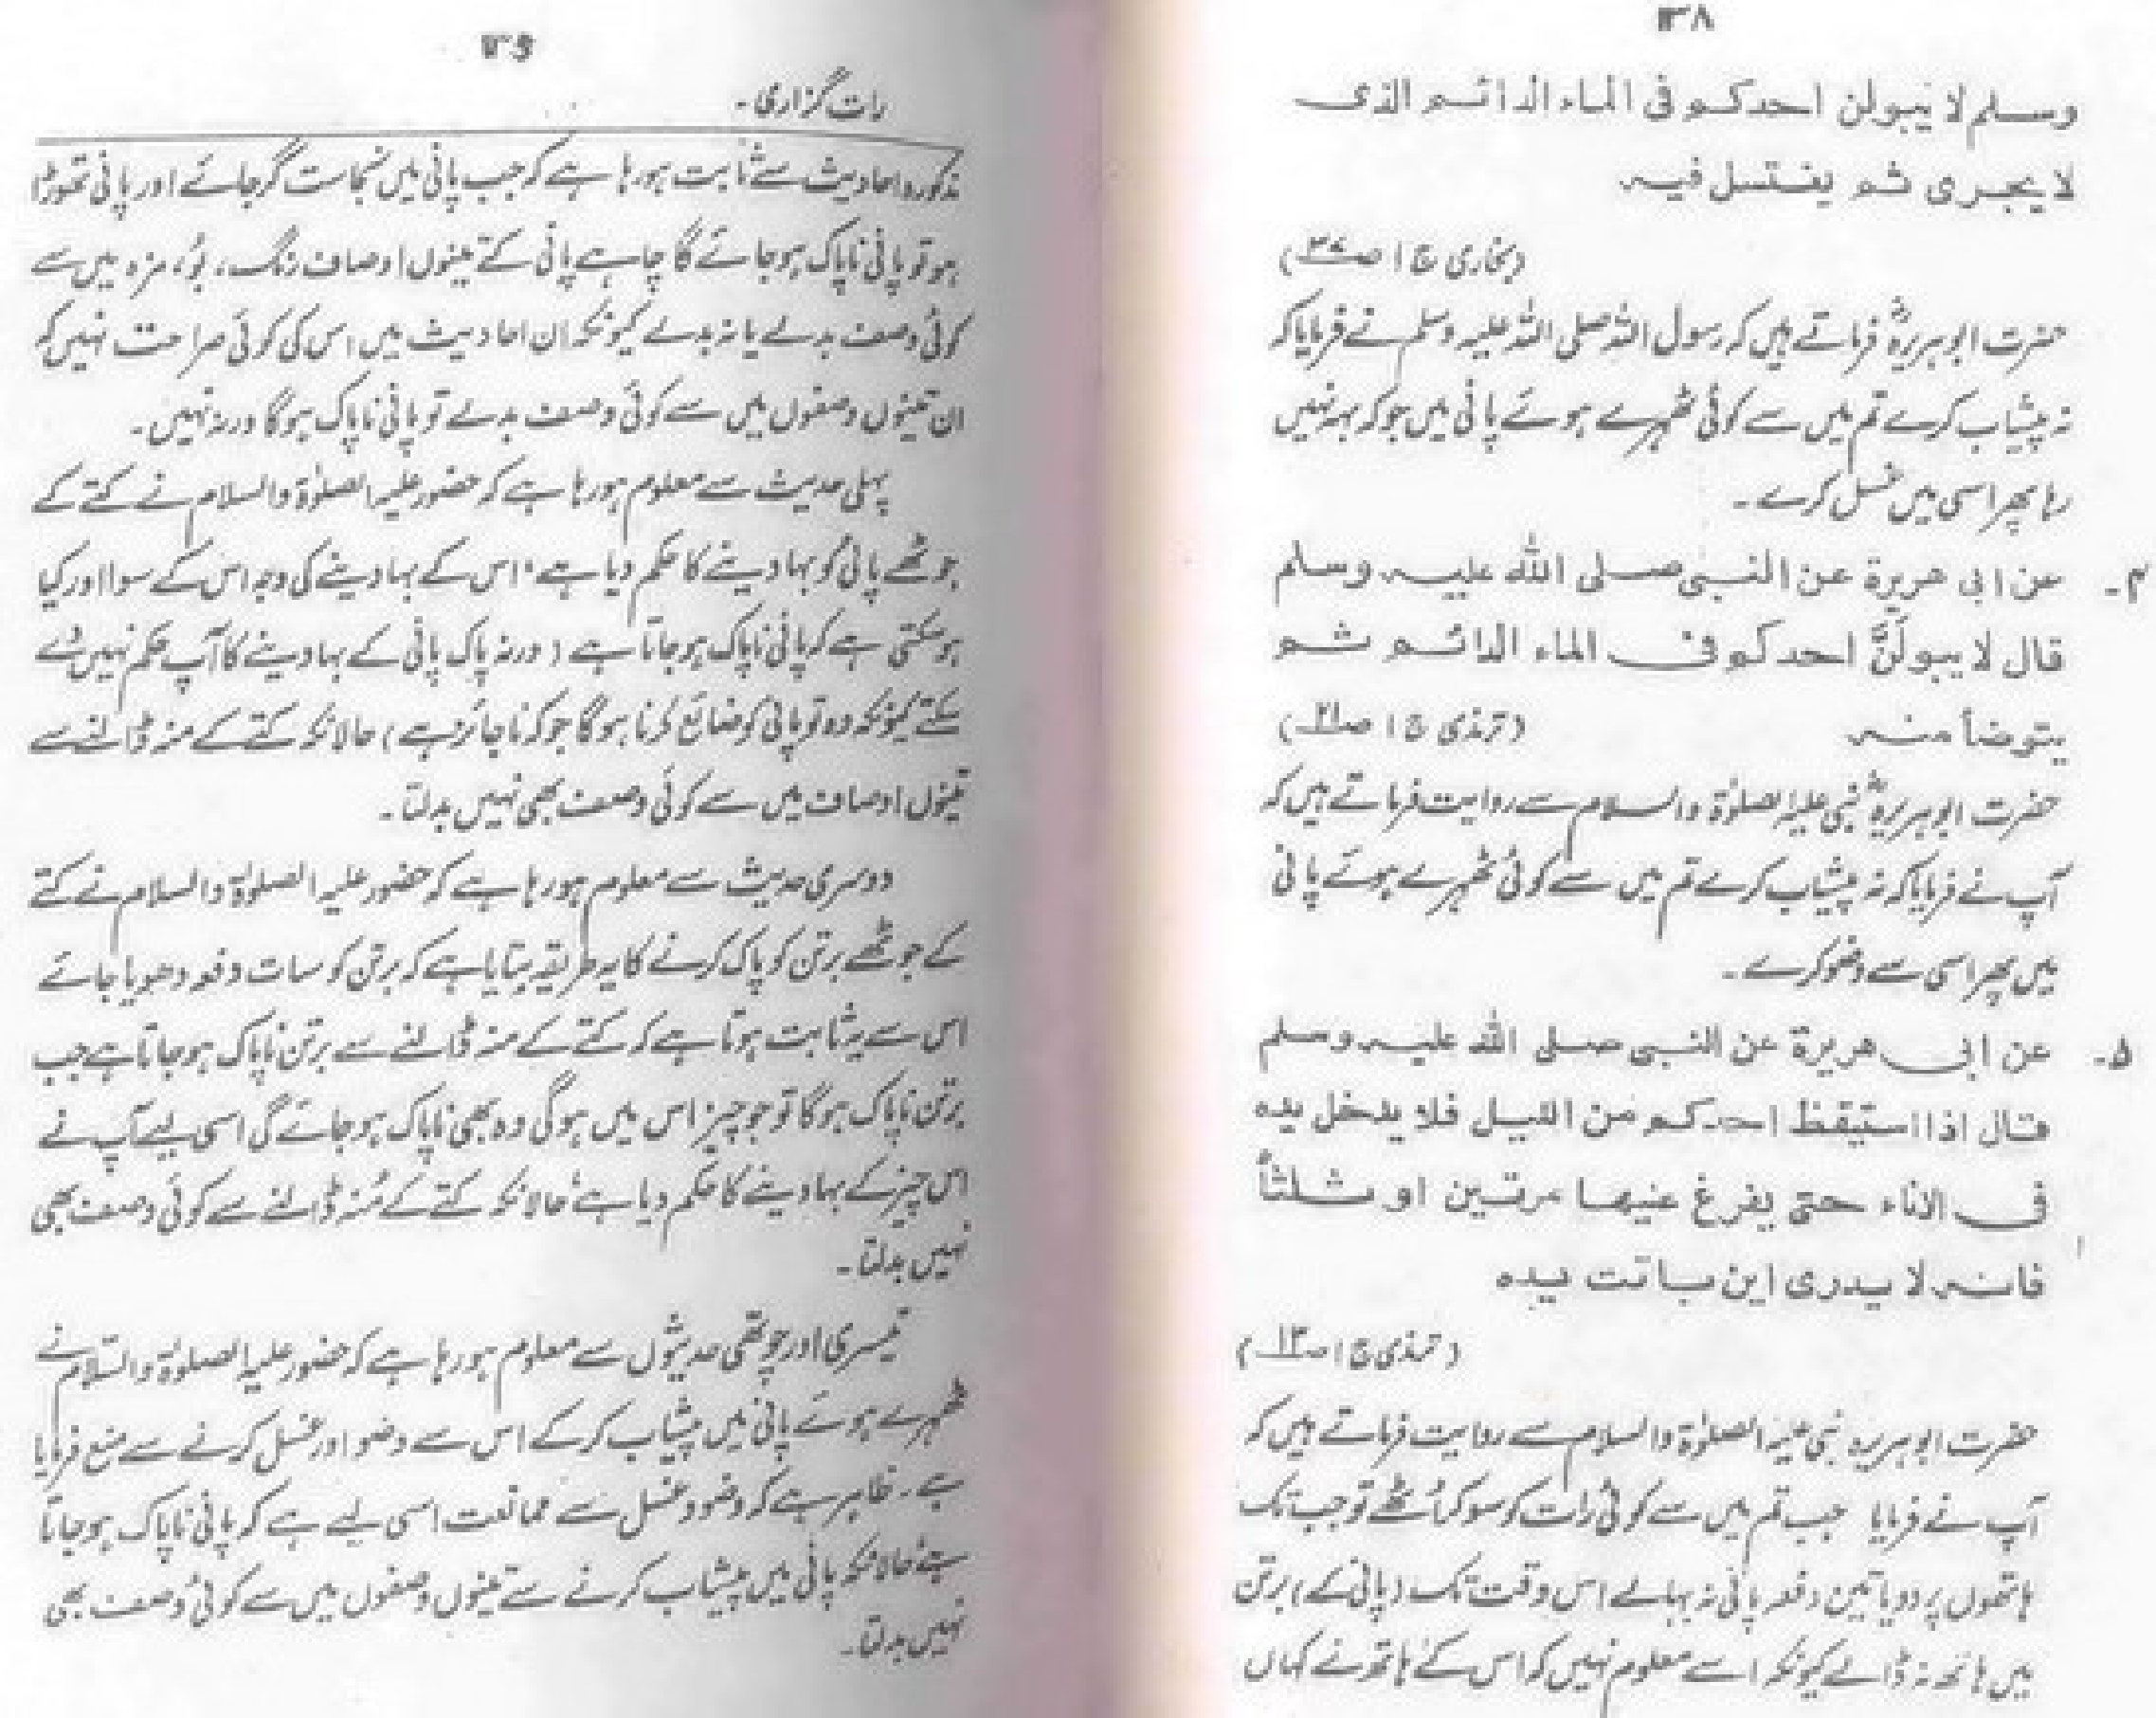 ١٣٨
وسلم لا يبولن احدكم فى الماء الدائم الذى
لا يجرى ثم يغتسل فيه
(بخاری ج ۱ ص۳۷)
حضرت ابوہریرہؓ فرماتے ہیں کہ رسول اللہ صلی اللہ علیہ وسلم نے فرمایا کہ
نہ پیشاب کرے تم میں سے کوئی ٹھہرے ہوئے پانی میں جو کہ بہہ نہیں
رہا پھر اسی میں غسل کرے۔
۴۔ عن ابى هريرة عن النبى صلى الله عليه وسلم
قال لا يبولَنَّ احدكم فى الماء الدائم ثم
يتوضأ منه (ترمذی ج ۱ ص۲۱)
حضرت ابوہریرہؓ نبی علیہ الصلوٰۃ والسلام سے روایت فرماتے ہیں کہ
آپ نے فرمایا کہ نہ پیشاب کرے تم میں سے کوئی ٹھہرے ہوئے پانی
میں پھر اسی سے وضو کرے۔
۵۔ عن ابى هريرة عن النبى صلى الله عليه وسلم
قال اذا استيقظ احدكم من الليل فلا يدخل يده
فى الاناء حتى يفرغ عليها مرتين او ثلثاً
فانه لا يدرى اين باتت يده
(ترمذی ج ۱ ص۱۳)
حضرت ابوہریرہ نبی علیہ الصلوٰۃ والسلام سے روایت فرماتے ہیں کہ
آپ نے فرمایا جب تم میں سے کوئی رات کو سو کر اُٹھے تو جب تک
ہاتھوں پر دو یا تین دفعہ پانی نہ بہالے اس وقت تک (پانی کے) برتن
میں ہاتھ نہ ڈالے کیونکہ اسے معلوم نہیں کہ اس کے ہاتھ نے کہاں
رات گزاری۔
مذکورہ احادیث سے ثابت ہو رہا ہے کہ جب پانی میں نجاست گر جائے اور پانی تھوڑا
ہو تو پانی ناپاک ہو جائے گا چاہے پانی کے تینوں اوصاف رنگ، بُو، مزہ میں سے
کوئی وصف بدلے یا نہ بدلے کیونکہ ان احادیث میں اس کی کوئی صراحت نہیں کہ
ان تینوں وصفوں میں سے کوئی وصف بدلے تو پانی ناپاک ہوگا ورنہ نہیں۔
پہلی حدیث سے معلوم ہو رہا ہے کہ حضور علیہ الصلوٰۃ والسلام نے کتے کے
جوٹھے پانی کو بہا دینے کا حکم دیا ہے، اس کے بہا دینے کی وجہ اس کے سوا اور کیا
ہو سکتی ہے کہ پانی ناپاک ہو جاتا ہے (ورنہ پاک پانی کے بہا دینے کا آپ حکم نہیں دے
سکتے کیونکہ وہ تو پانی کو ضائع کرنا ہوگا جو کہ ناجائز ہے) حالانکہ کتے کے منہ ڈالنے سے
تینوں اوصاف میں سے کوئی وصف بھی نہیں بدلتا۔
دوسری حدیث سے معلوم ہو رہا ہے کہ حضور علیہ الصلوٰۃ والسلام نے کتے
کے جوٹھے برتن کو پاک کرنے کا یہ طریقہ بتایا ہے کہ برتن کو سات دفعہ دھویا جائے
اس سے یہ ثابت ہوتا ہے کہ کتے کے منہ ڈالنے سے برتن ناپاک ہو جاتا ہے جب
برتن ناپاک ہوگا تو جو چیز اس میں ہوگی وہ بھی ناپاک ہو جائے گی اسی لیے آپ نے
اس چیز کے بہا دینے کا حکم دیا ہے، حالانکہ کتے کے مُنہ ڈالنے سے کوئی وصف بھی
نہیں بدلتا۔
تیسری اور چوتھی حدیثوں سے معلوم ہو رہا ہے کہ حضور علیہ الصلوٰۃ والسّلام نے
ٹھہرے ہوئے پانی میں پیشاب کرکے اس سے وضو اور غسل کرنے سے منع فرمایا
ہے۔ ظاہر ہے کہ وضو و غسل سے ممانعت اسی لیے ہے کہ پانی ناپاک ہو جاتا
ہے، حالانکہ پانی میں پیشاب کرنے سے تینوں وصفوں میں سے کوئی وصف بھی
نہیں بدلتا۔